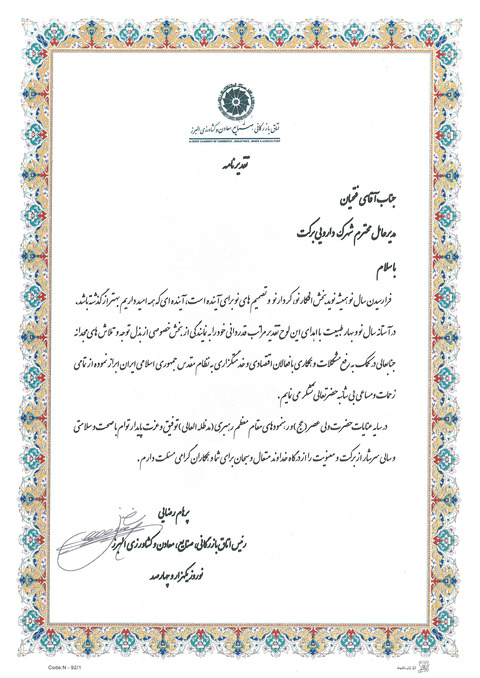 اتاق بازرگانی، صنایع، معادن و کشاورزی البرز
ALBORZ CHAMBER OF COMMERCE, INDUSTRIES, MINES & AGRICULTURE
تقدیرنامه
جناب آقای فتحیان
مدیرعامل محترم شهرک دارویی برکت
با سلام
فرا رسیدن سال نو همیشه نوید بخش افکار نو، کردار نو و تصمیم های نو برای آینده است، آینده ای که همه امید داریم بهتر از گذشته باشد.
در آستانه سال نو و بهار طبیعت با اهدای این لوح تقدیر مراتب قدردانی خود را به نمایندگی از بخش خصوصی از بذل توجه و تلاش های مجدانه
جنابعالی در کمک به رفع مشکلات و همکاری با فعالان اقتصادی و خدمتگزاری به نظام مقدس جمهوری اسلامی ایران ابراز نموده از تمامی
زحمات و مساعی بی شائبه حضرتعالی تشکر می نمایم.
در سایه عنایات حضرت ولی عصر (عج) و رهنمودهای مقام معظم رهبری (مدظله العالی) توفیق و عزت پایدار توام با صحت و سلامتی
و سالی سرشار از برکت و معنویت را از درگاه خداوند متعال و سبحان برای شما و همکاران گرامی مسئلت دارم.
پرهام رضایی
رئیس اتاق بازرگانی، صنایع، معادن و کشاورزی البرز
نوروز یکهزار و چهارصد
Code:N - 92/1